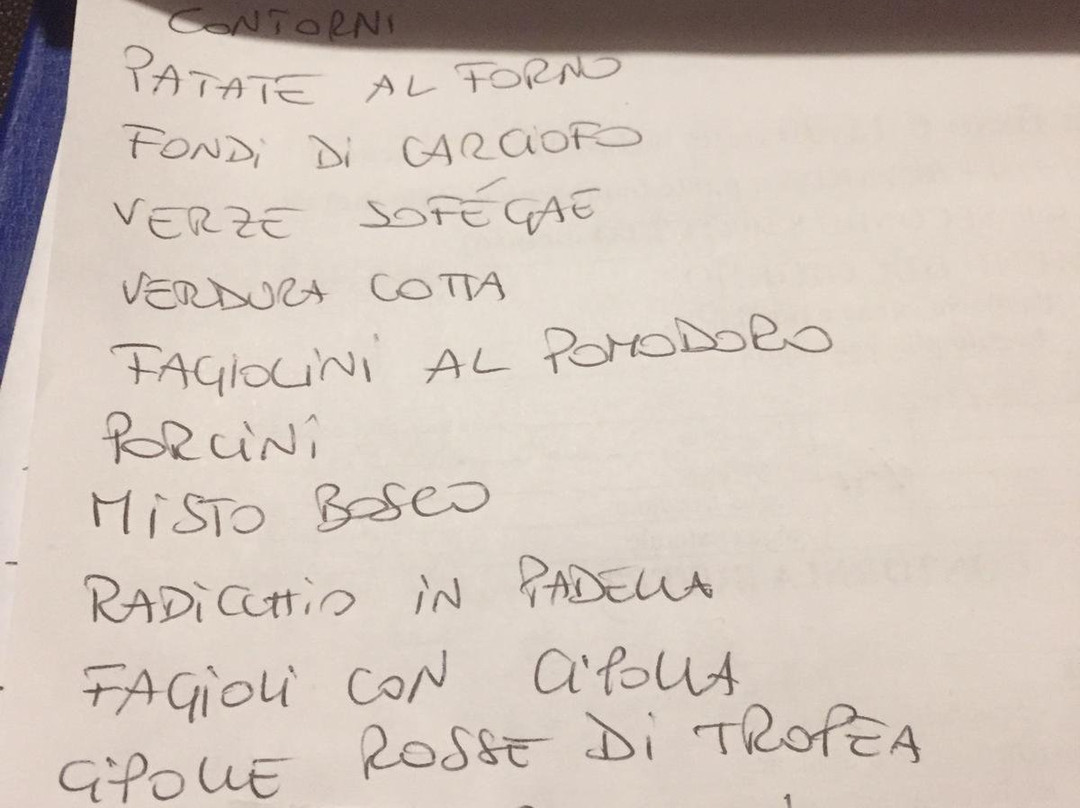 CONTORNI
PATATE AL FORNO
FONDI DI CARCIOFO
VERZE SOFÉGAE
VERDURA COTTA
FAGIOLINI AL POMODORO
PORCINI
MISTO BOSCO
RADICCHIO IN PADELLA
FAGIOLI CON CIPOLLA
CIPOLLE ROSSE DI TROPEA